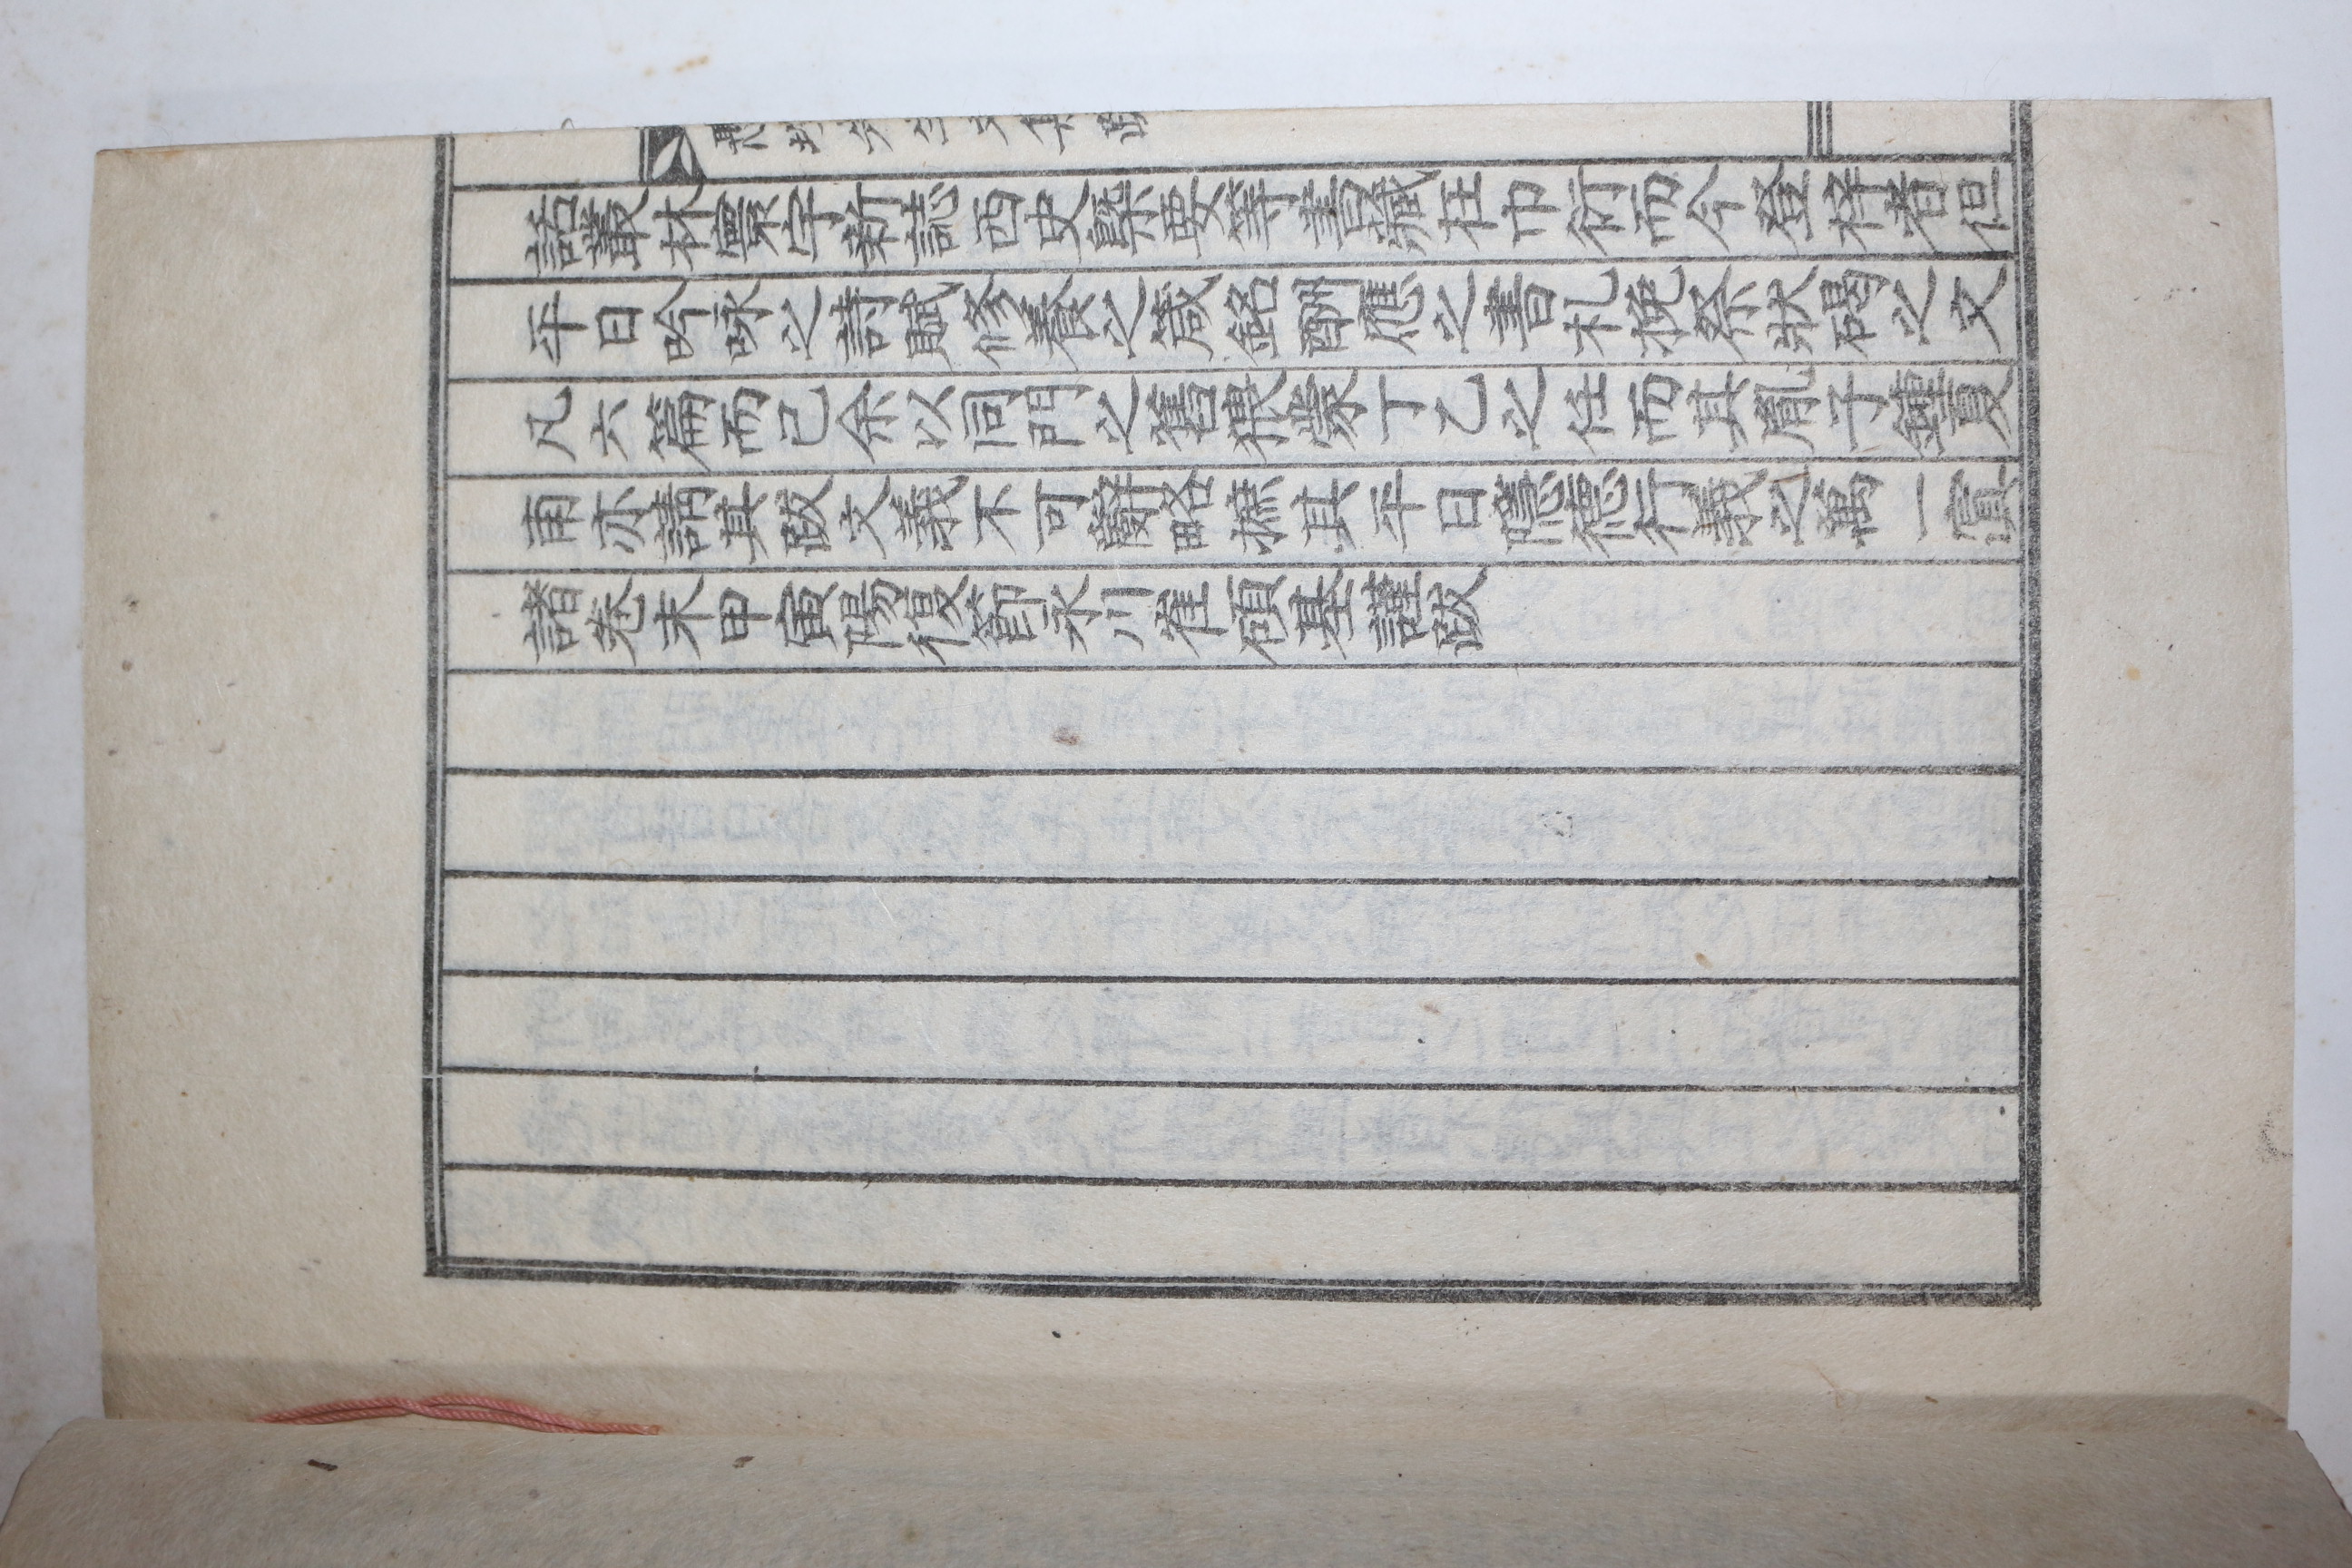 話叢林寰宇新誌西史槩要等書藏在巾衍而今登梓者但
平日吟咏之詩賦修養之箴銘酬應之書札挽祭狀碣之文
凡六篇而已余以同門之舊猥蒙丁乙之任而其胤子鍾夏
甫亦請其跋文義不可辭略摭其平日隱德行義之萬一寘
諸卷末甲寅陽復節永川崔碩基謹跋
先生文集跋